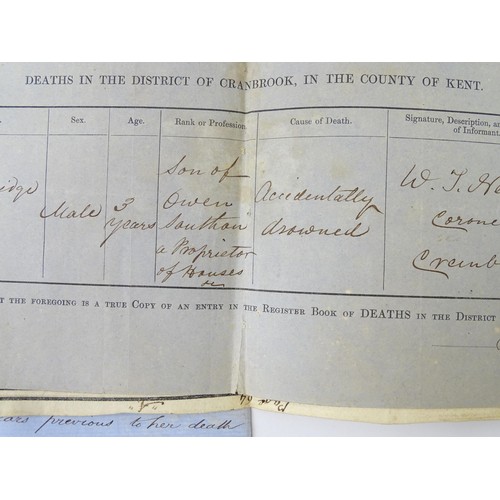 DEATHS IN THE DISTRICT OF CRANBROOK, IN THE COUNTY OF KENT.
Sex. Age. Rank or Profession. Cause of Death. Signature, Description, an
of Informant.
idge
Male
3
years
Son of
Owen
Southon
a Proprietor
of Houses
Accidentally
drowned
W. T. N
Corone
Cranb
T THE FOREGOING IS A TRUE COPY OF AN ENTRY IN THE REGISTER BOOK OF DEATHS IN THE DISTRICT
ars previous to her death